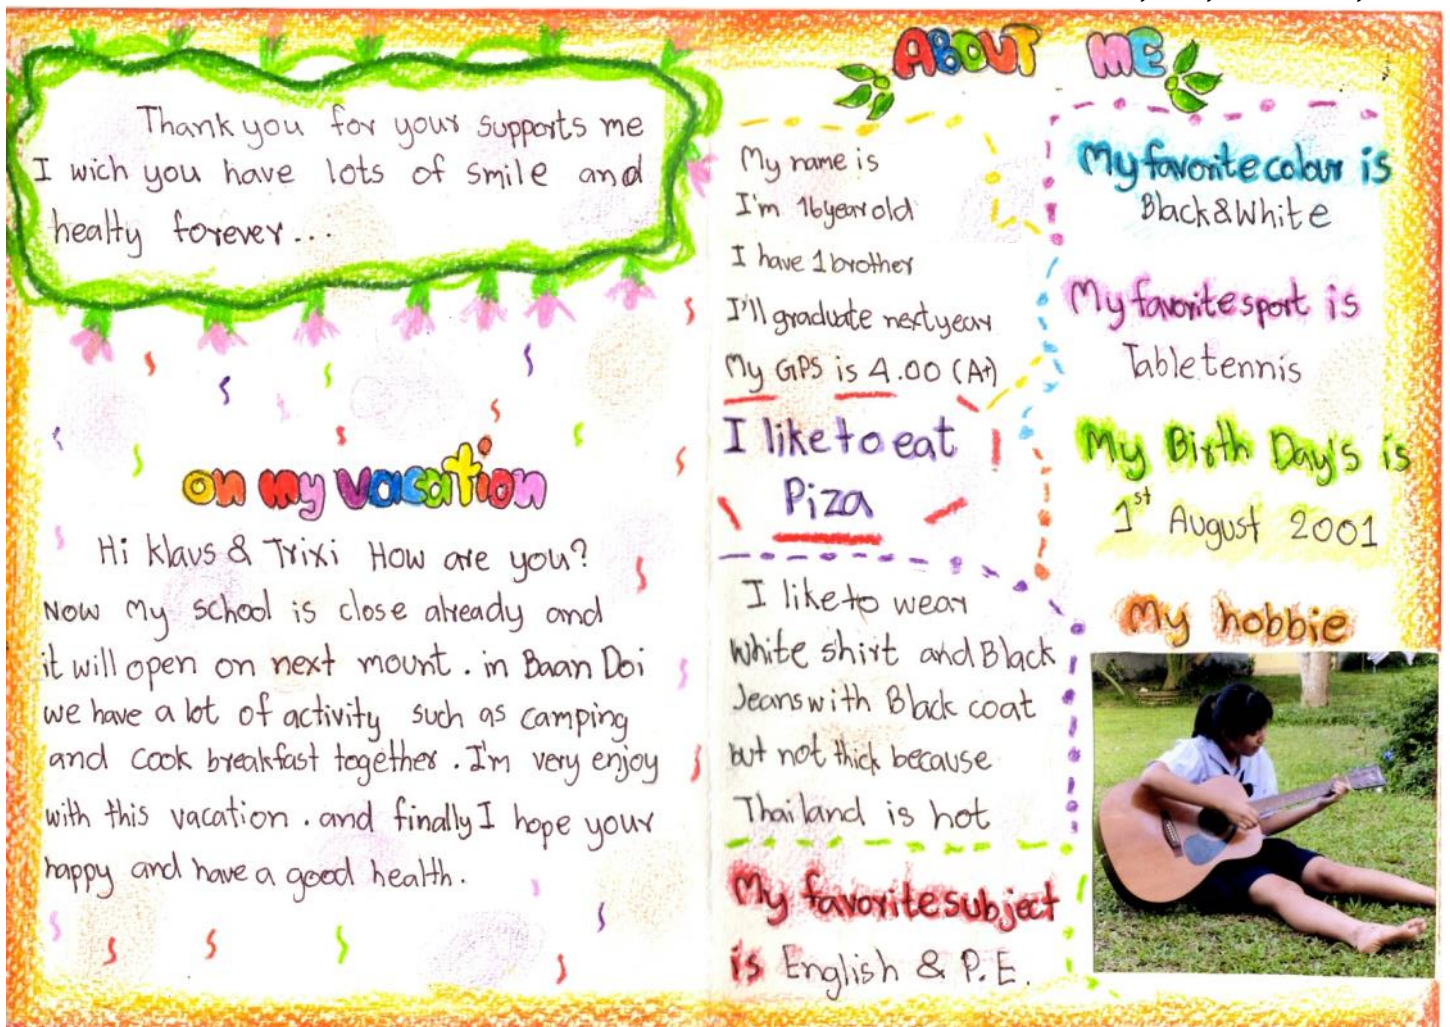 Thank you for your supports me
I wich you have lots of smile and
healty forever...
on my vacation
Hi Klaus & Trixi How are you?
Now My school is close already and
it will open on next mount. in Baan Doi
we have a lot of activity such as camping
and cook breakfast together. I'm very enjoy
with this vacation. and finally I hope your
happy and have a good health.
ABOUT ME
My name is
I'm 16 year old
I have 1 brother
I'll graduate next year
My GPS is 4.00 (A+)
I like to eat
Piza
I like to wear
White shirt and Black
Jeans with Black coat
but not thick because
Thailand is hot
My favorite subject
is English & P.E.
My favorite colour is
Black & White
My favorite sport is
Table tennis
My Birth Day's is
1st August 2001
My hobbie